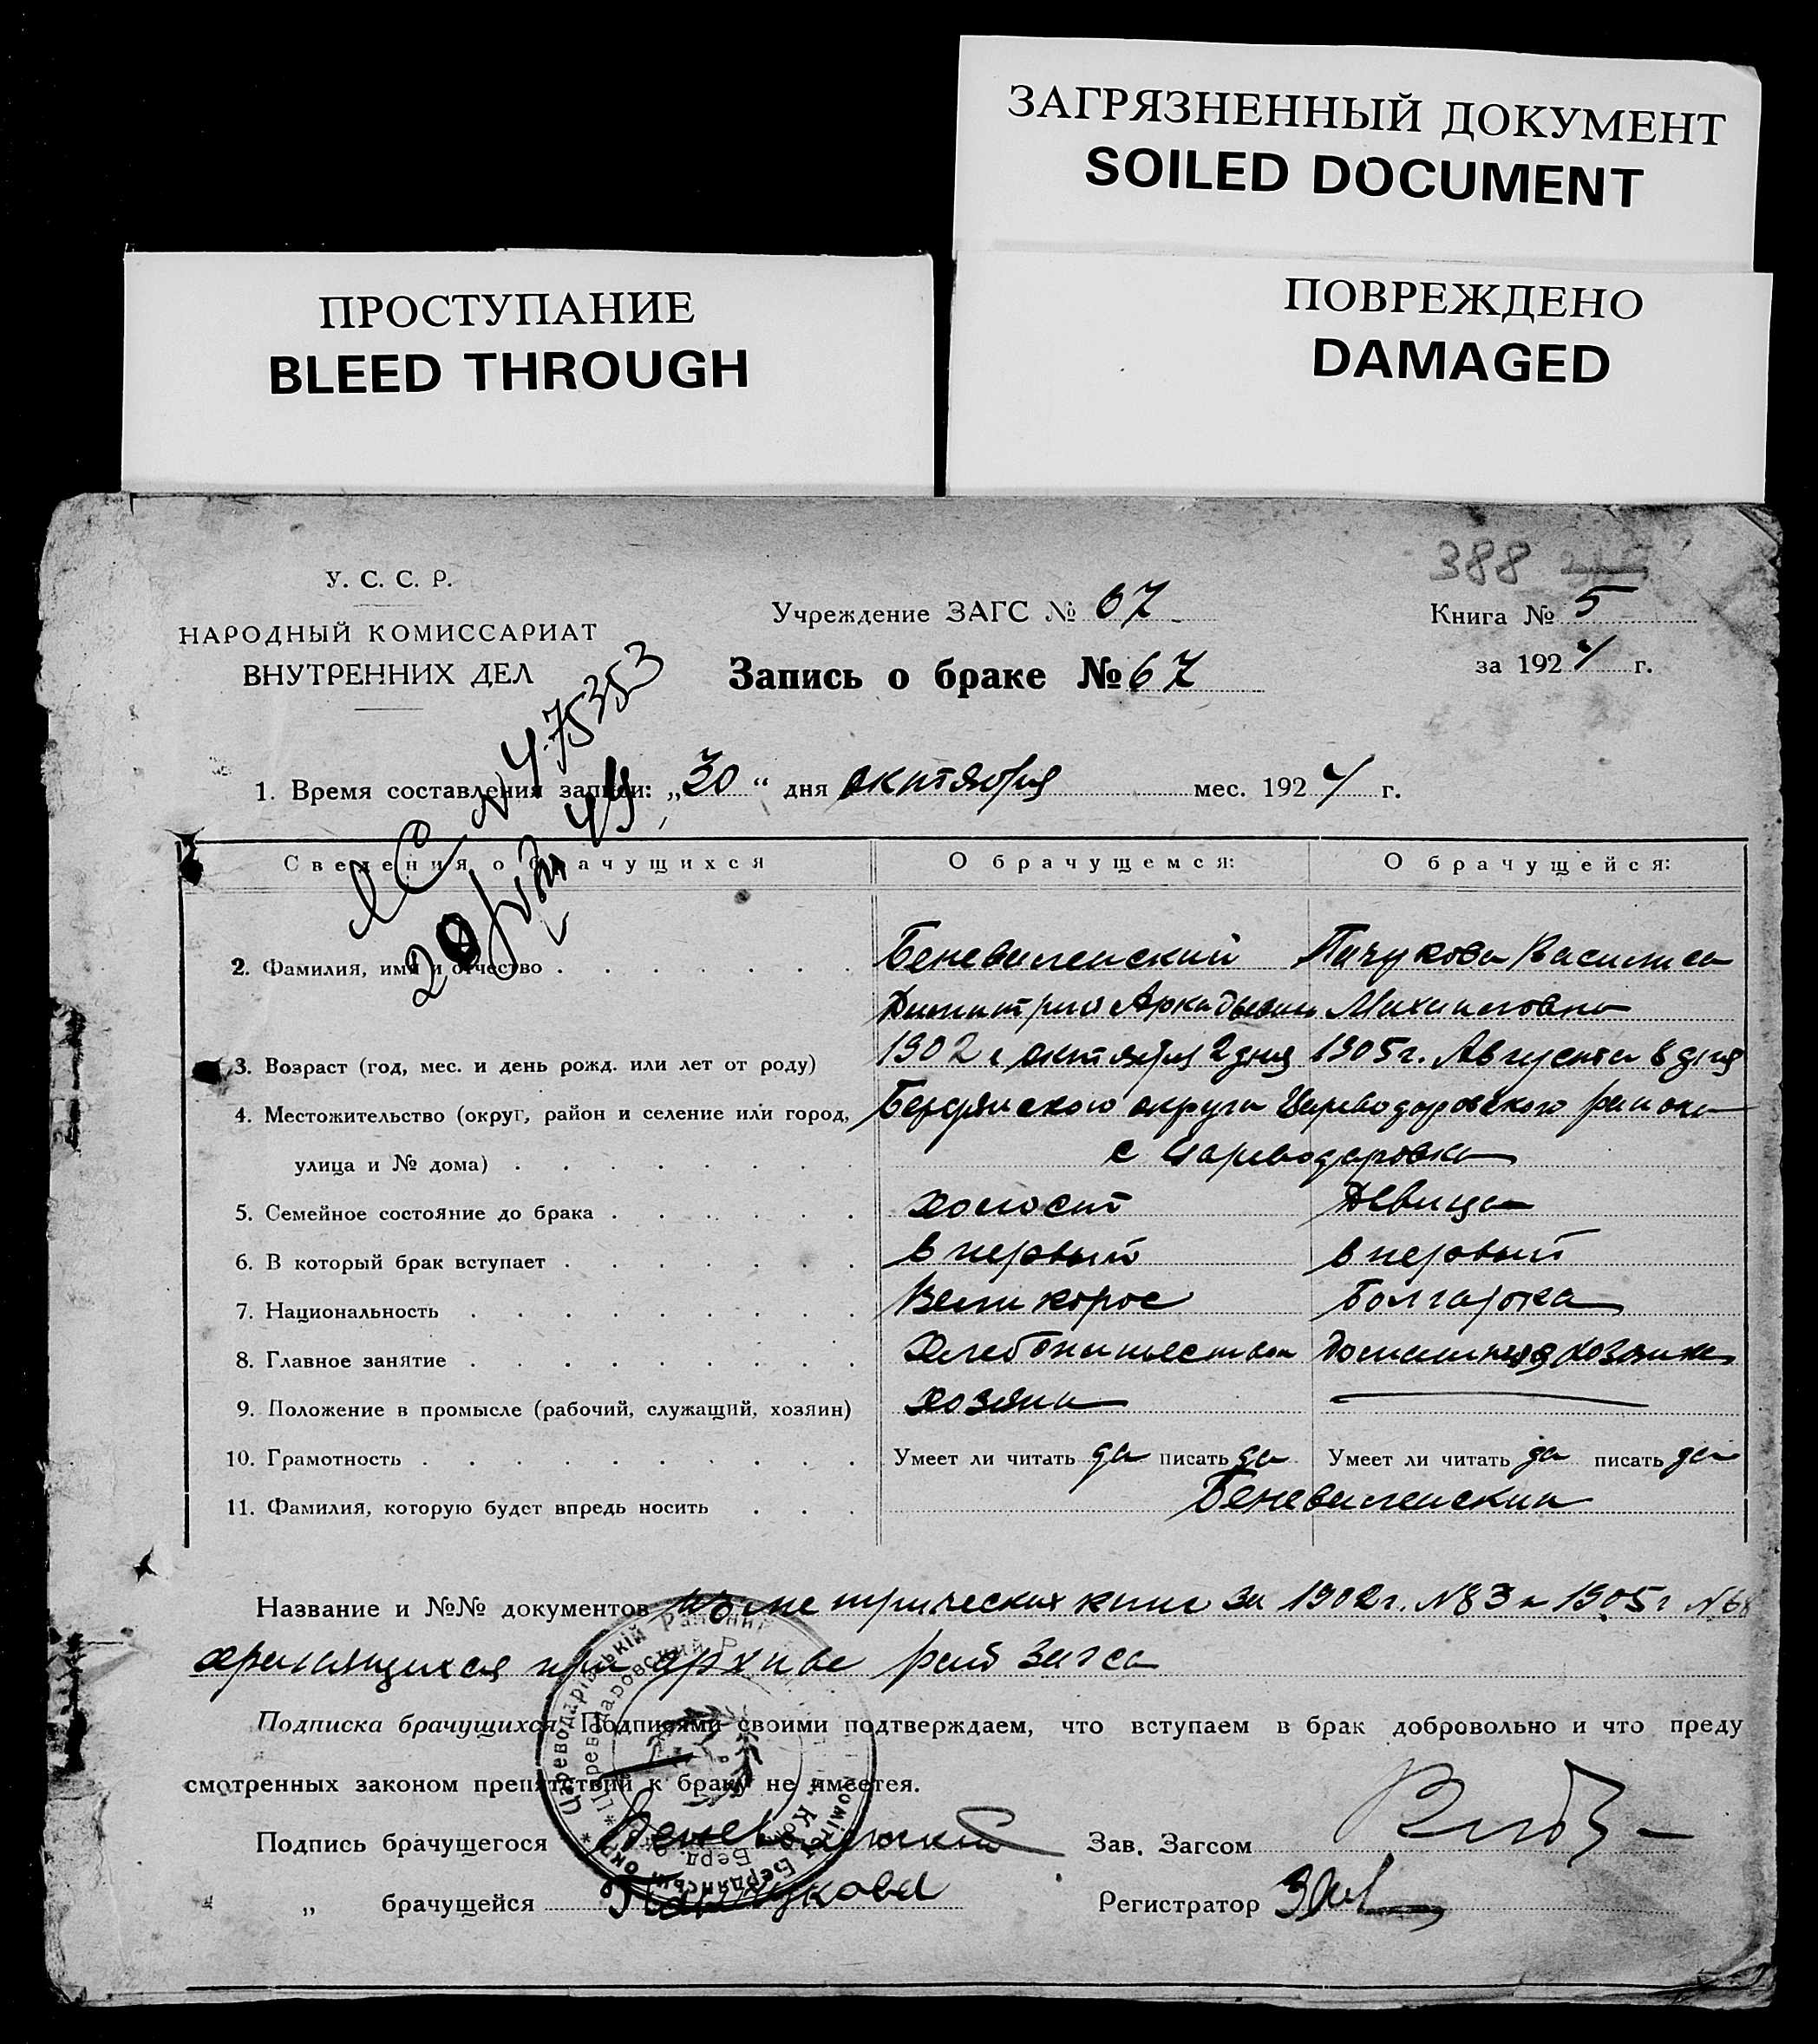 ЗАГРЯЗНЕННЫЙ ДОКУМЕНТ
SOILED DOCUMENT
ПРОСТУПАНИЕ
BLEED THROUGH
ПОВРЕЖДЕНО
DAMAGED
388
У. С. С. Р.
НАРОДНЫЙ КОМИССАРИАТ
ВНУТРЕННИХ ДЕЛ
Учреждение ЗАГС № 67
Запись о браке № 67
Книга № 5
за 1924 г.
1. Время составления записи: „30“ дня октября мес. 1924 г.
Сведения о брачущихся О брачущемся: О брачущейся:
2. Фамилия, имя и отчество Беневоленский Пачукова Василиса
Димитрий Аркадьевич Михайловна
3. Возраст (год, мес. и день рожд. или лет от роду) 1902 г октября 2 дня 1905 г. Августа 8 дня
4. Местожительство (округ, район и селение или город, Бердянского округа Цареводаровского района
улица и № дома) с Цареводаровка
5. Семейное состояние до брака холост Девица
6. В который брак вступает в первый в первый
7. Национальность Великорос Болгарка
8. Главное занятие домашняя
9. Положение в промысле (рабочий, служащий, хозяин) хозяин
10. Грамотность Умеет ли читать да писать да Умеет ли читать да писать да
11. Фамилия, которую будет впредь носить
Название и №№ документов метрических книг за 1902 г. № 83 и 1905 г
хранящихся при архиве рай загса
Подписка брачущихся: Подписями своими подтверждаем, что вступаем в брак добровольно и что преду
смотренных законом препятствий к браку не имеется.
Подпись брачущегося Беневоленский Зав. Загсом
„ брачущейся Пачукова Регистратор